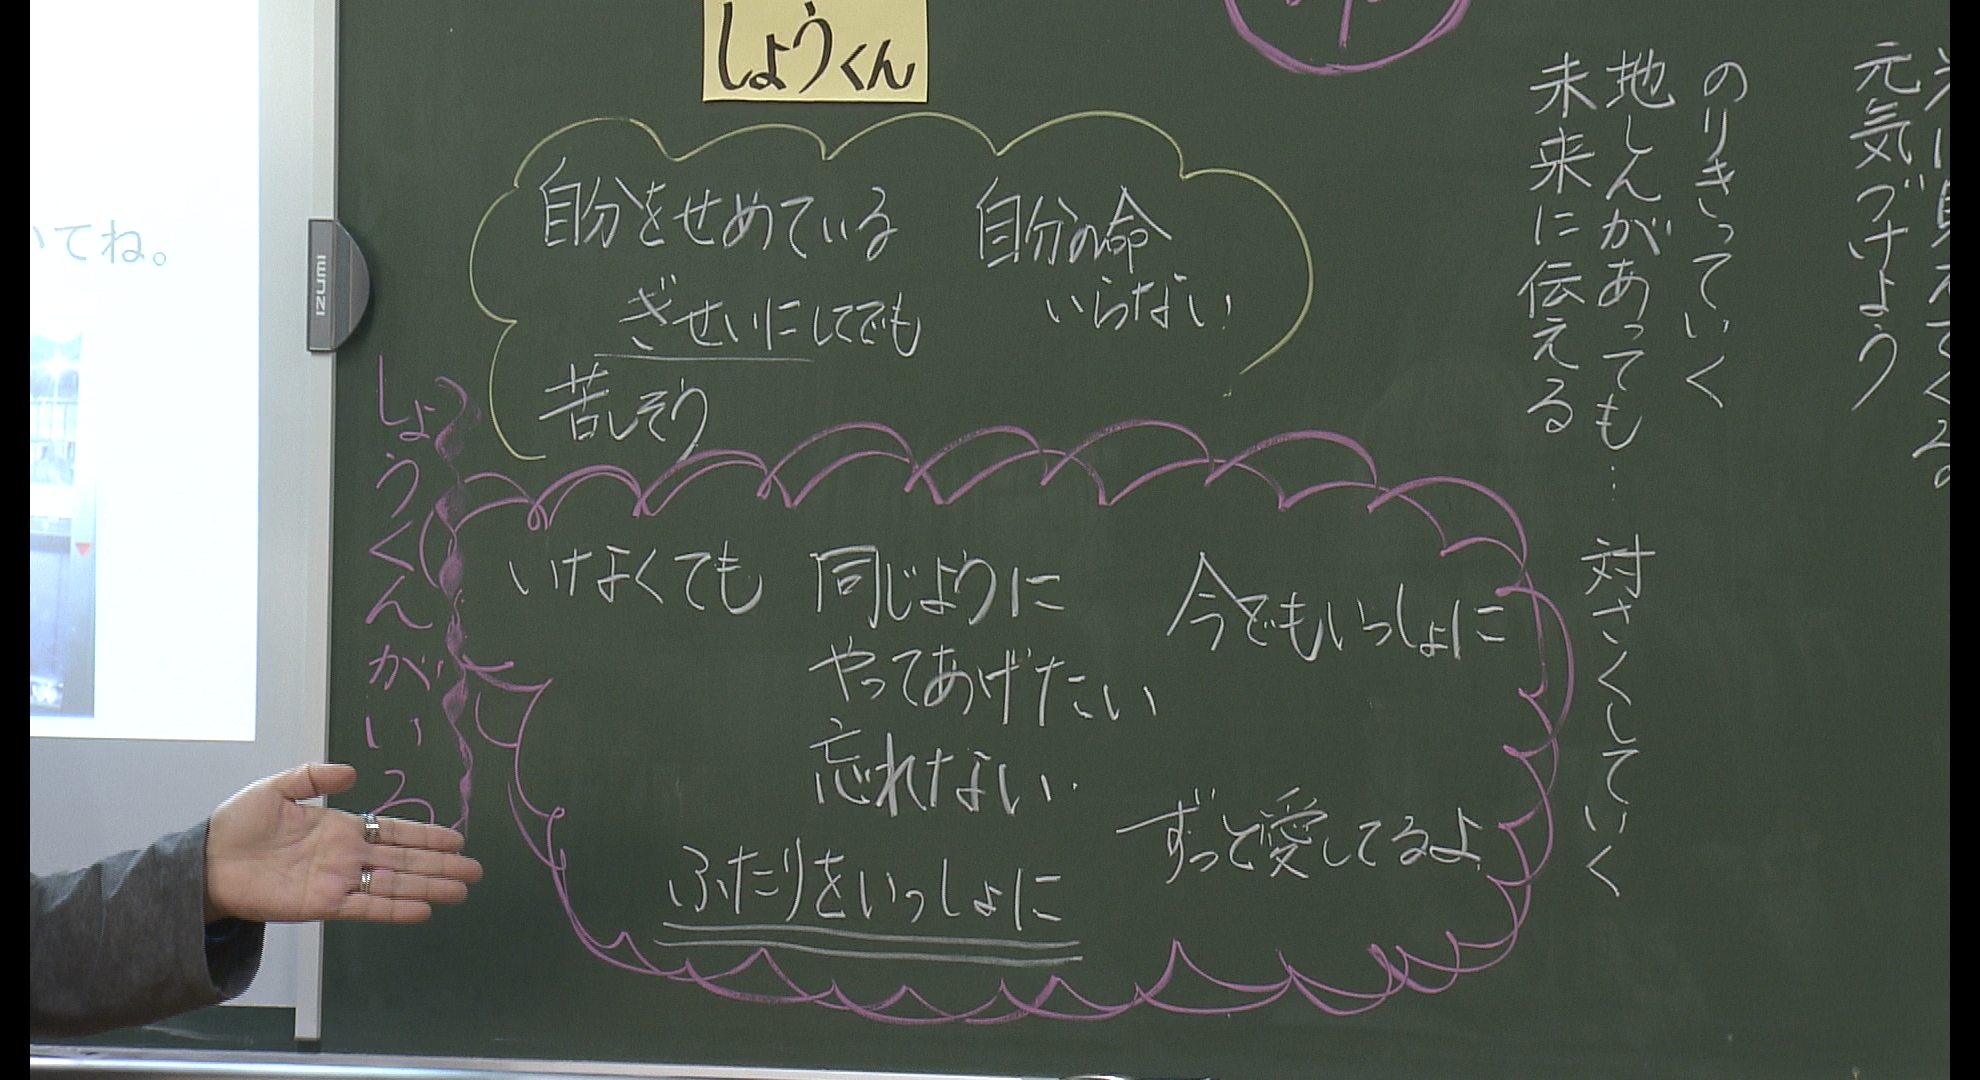 しょうくん
自分をせめている
ぎせいにしてでも
苦しそう
自分の命
いらない
しょうくんがいる
いけなくても
同じように
やってあげたい
忘れない
ふたりをいっしょに
今でもいっしょに
ずっと愛してるよ
元気づけよう
のりきっていく
地しんがあっても… 対さくしていく
未来に伝える
いてね。
IZUMI